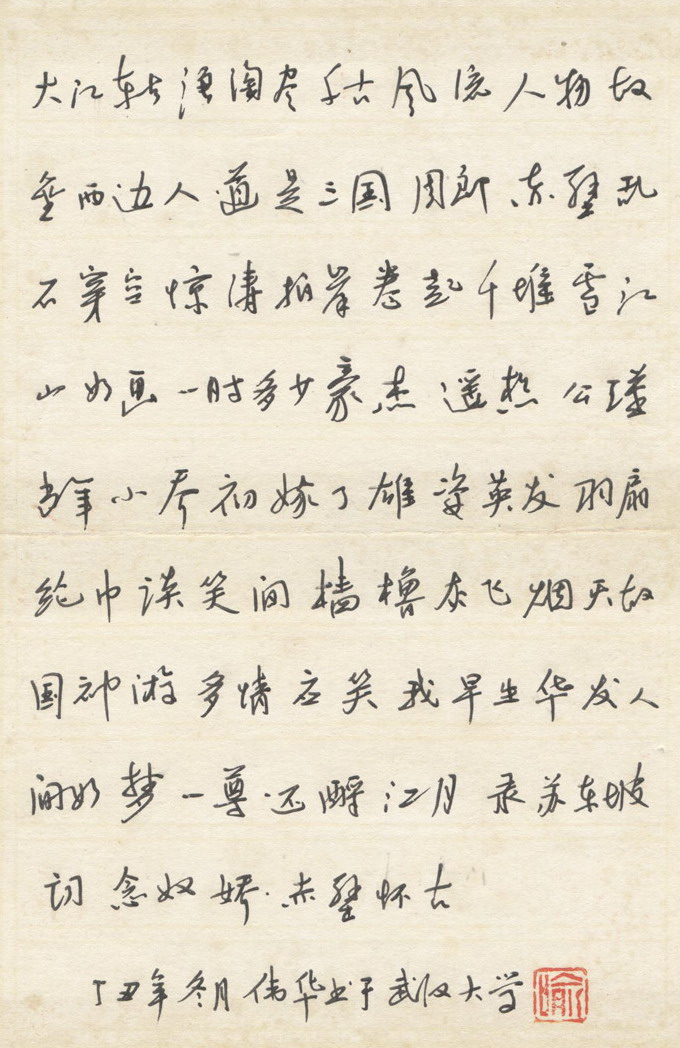 大江东去浪淘尽千古风流人物故
垒西边人道是三国周郎赤壁乱
石穿空惊涛拍岸卷起千堆雪江
山如画一时多少豪杰遥想公瑾
当年小乔初嫁了雄姿英发羽扇
纶巾谈笑间樯橹灰飞烟灭故
国神游多情应笑我早生华发人
间如梦一尊还酹江月录苏东坡
词念奴娇·赤壁怀古
丁丑年冬月伟华书于武汉大学